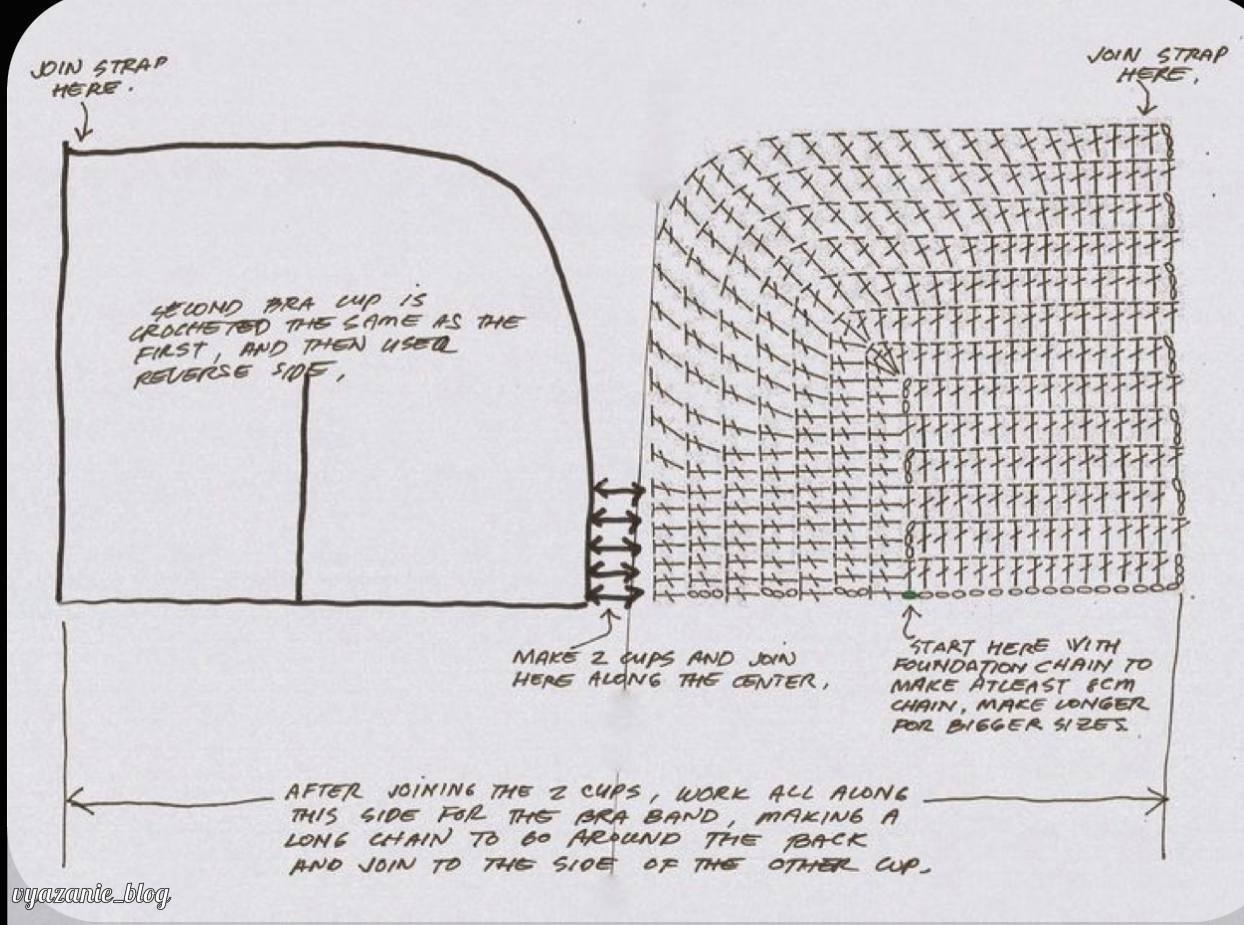 JOIN STRAP
HERE.
JOIN STRAP
HERE,
SECOND BRA CUP IS
CROCHETED THE SAME AS THE
FIRST, AND THEN USED
REVERSE SIDE,
MAKE 2 CUPS AND JOIN
HERE ALONG THE CENTER,
START HERE WITH
FOUNDATION CHAIN TO
MAKE ATLEAST 8CM
CHAIN, MAKE LONGER
FOR BIGGER SIZES.
AFTER JOINING THE 2 CUPS, WORK ALL ALONG
THIS SIDE FOR THE BRA BAND, MAKING A
LONG CHAIN TO GO AROUND THE BACK
AND JOIN TO THE SIDE OF THE OTHER CUP.
vyazanie_blog